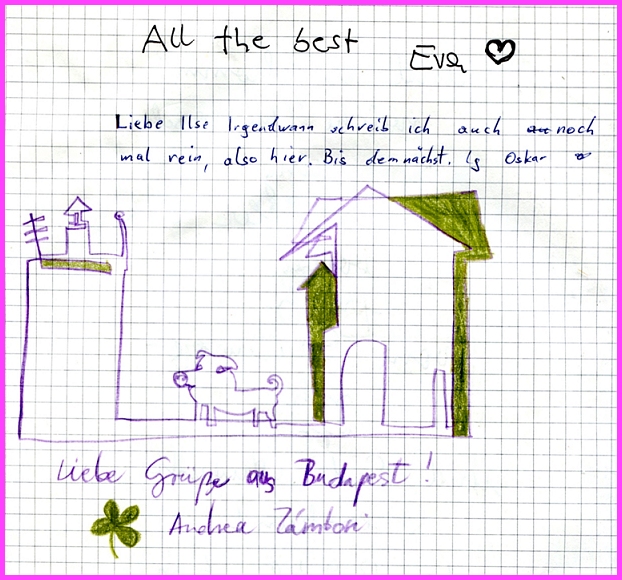 All the best
Eva
Liebe Ilse Irgendwann schreib ich auch noch
mal rein, also hier. Bis demnächst. Lg Oskar
Liebe Grüße aus Budapest!
Andrea Zámbori